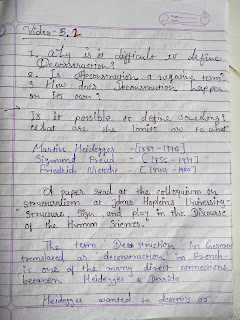 Video - 5.2
1. Why is it difficult to define
Deconstruction?
2. Is deconstruction a negative term?
3. How does deconstruction happen
on its own?
Is it possible to define something?
what are the limits
Martin Heidegger - [1889 - 1976]
Sigmund Freud - [1856 - 1939]
Friedrich Nietzsche -
A paper read at the colloquium on
structuralism at Johns Hopkins University -
"Structure, Sign and play in the Discourse
of the Human Sciences."
The term, Destruction in German
translated as deconstruction in French -
is one of the many direct connections
between Heidegger & Derrida
Heidegger wanted to destroy or